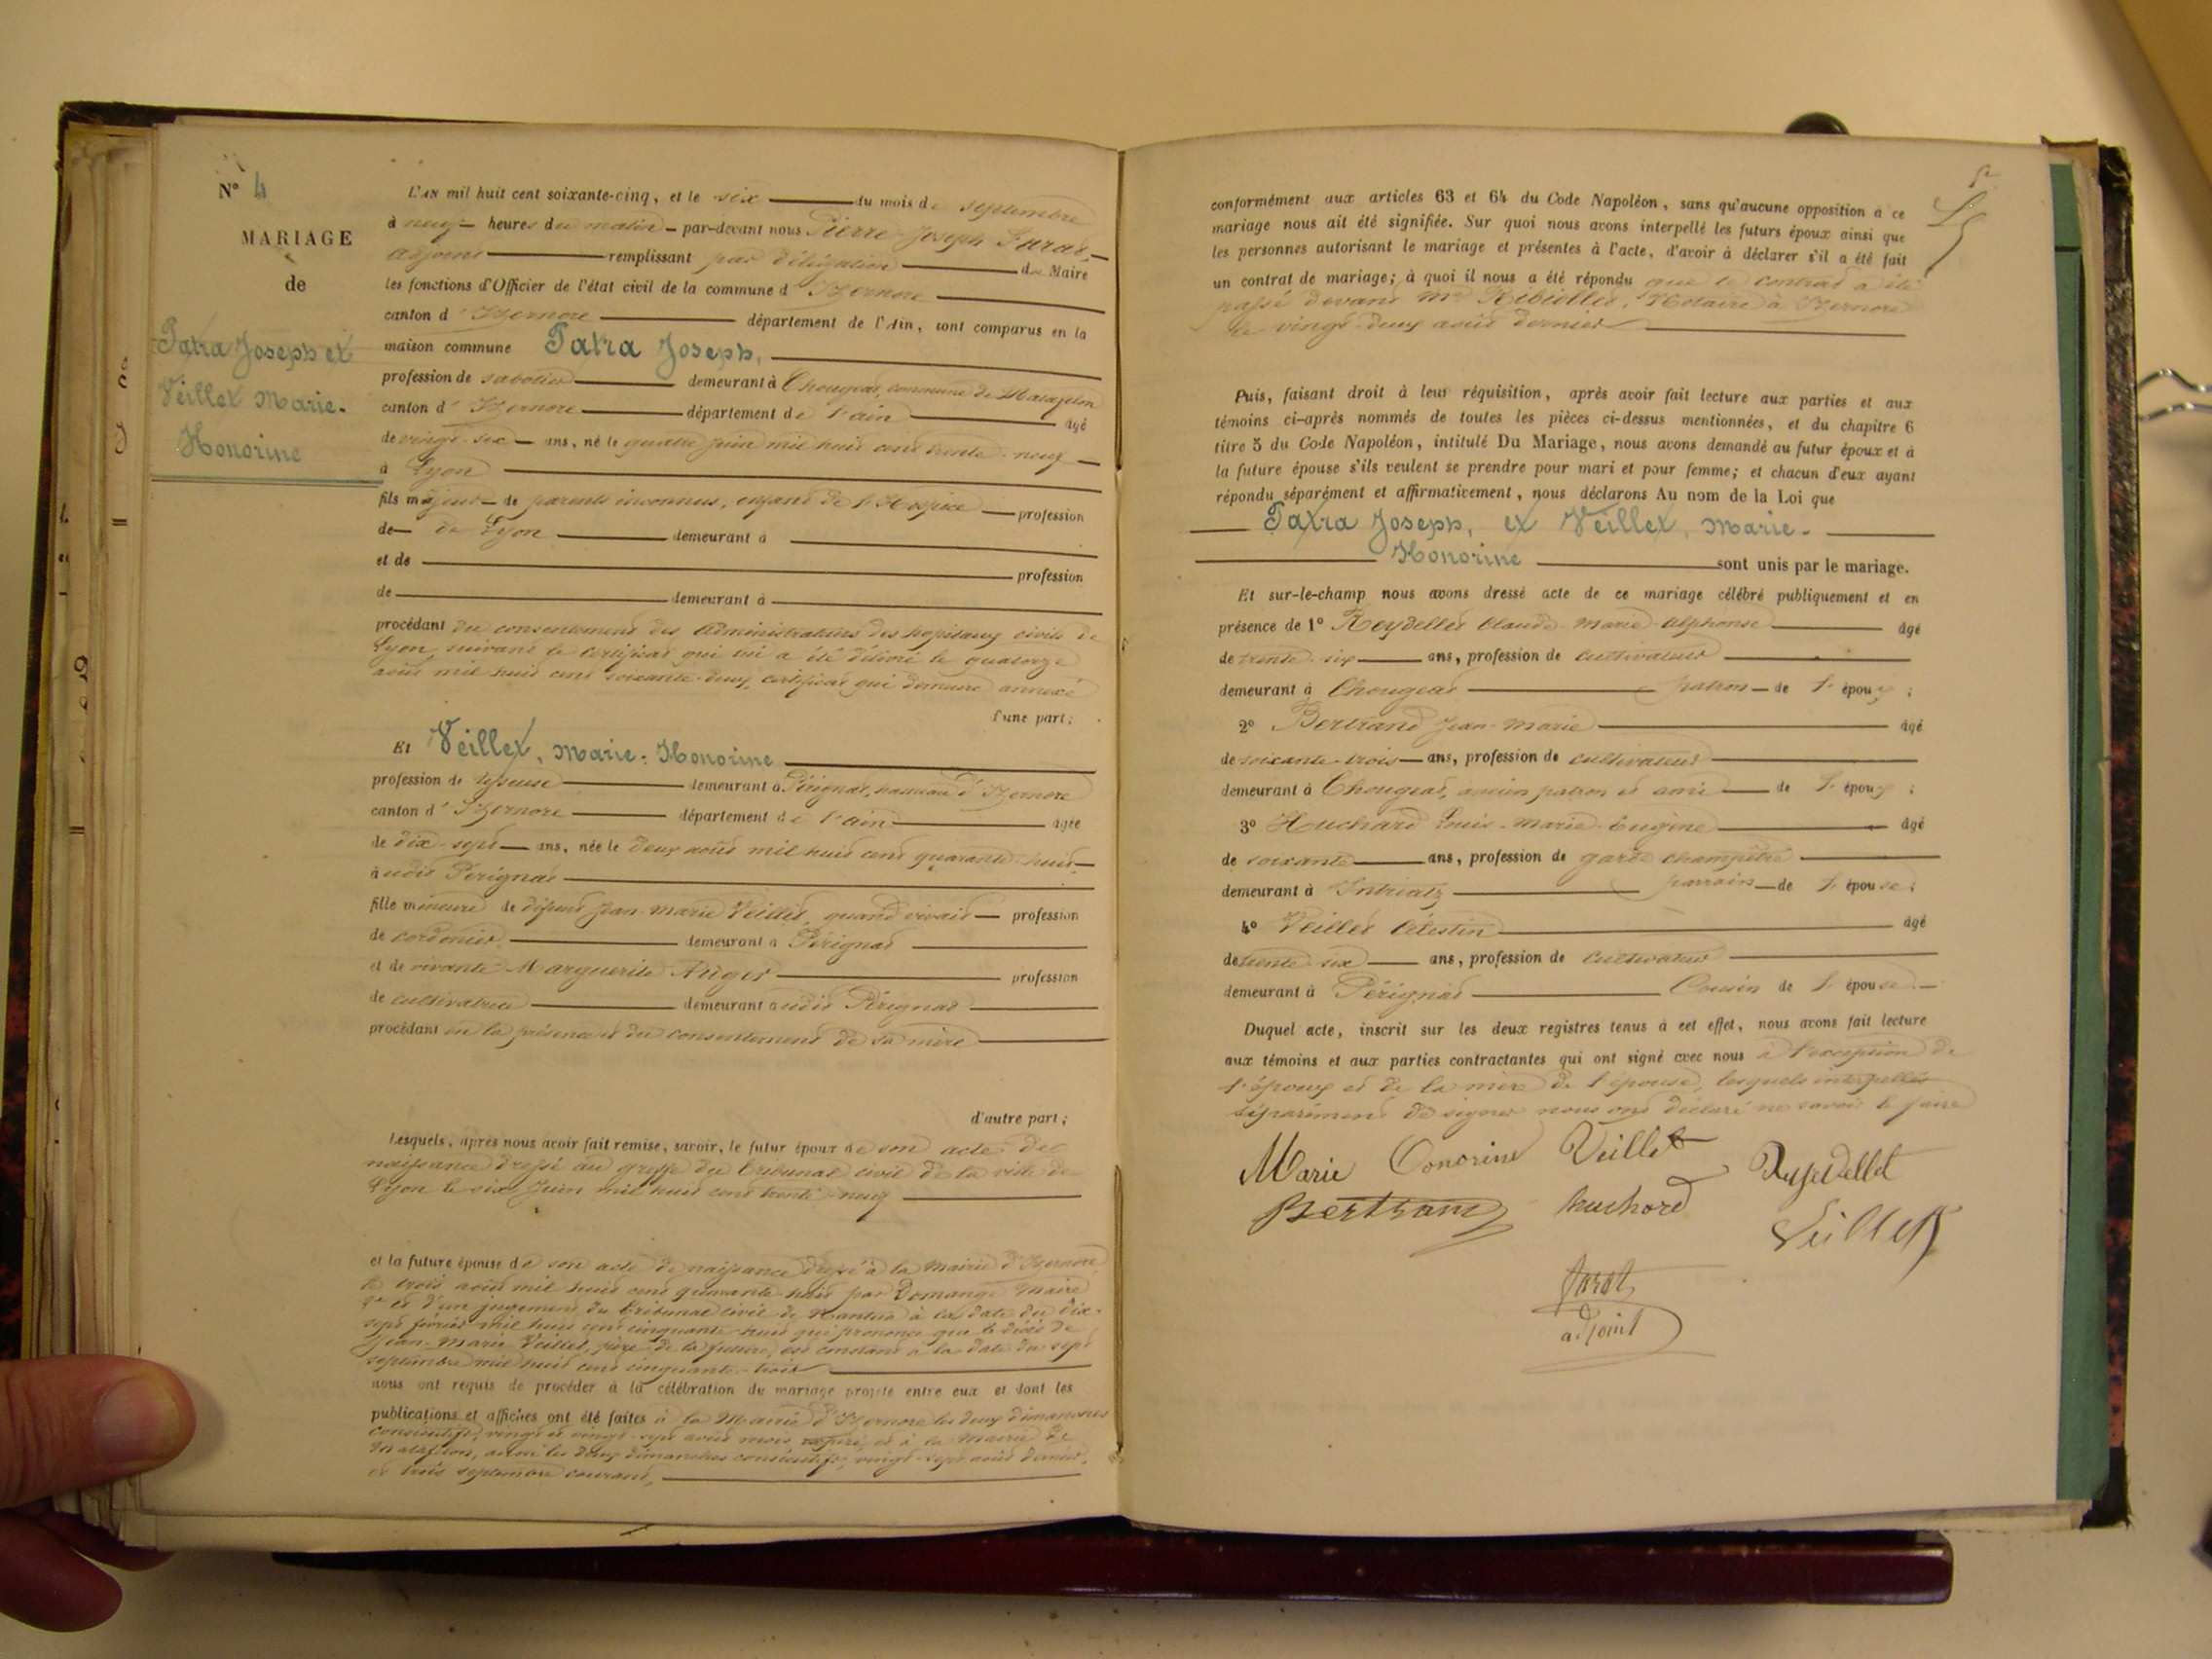 N° 4
MARIAGE
de
Patra Joseph et
Veillet Marie-
Honorine
L'AN mil huit cent soixante-cinq, et le six du mois de septembre
à neuf heures du matin par-devant nous Pierre-Joseph
adjoint remplissant par délégation du Maire
les fonctions d'Officier de l'état civil de la commune d'Izernore
canton d'Izernore département de l'Ain, sont comparus en la
maison commune Patra Joseph,
profession de sabotier demeurant à Chougeat, commune de Matafelon
canton d'Izernore département de l'ain âgé
de vingt-six ans, né le quatre juin mil huit cent trente-neuf
à Lyon
fils majeur de parents inconnus, enfant de l'Hospice profession
de de Lyon demeurant à
et de profession
de demeurant à
procédant du consentement des Administrateurs des hopitaux civils de
Lyon, suivant le certificat qui lui a été délivré le quatorze
août mil huit cent soixante-deux, certificat qui demeure annexé
d'une part;
Et Veillet, Marie-Honorine
profession de demeurant à Pérignat, hameau d'Izernore
canton d'Izernore département de l'ain âgée
de dix-sept ans, née le deux août mil huit cent quarante-huit
à udit Pérignat
fille mineure de défunt Jean-Marie Veillet, quand vivait profession
de cordonier demeurant à Pérignat
et de vivante Marguerite profession
de cultivatrice demeurant audit Pérignat
procédant en la présence et du consentement de sa mère
d'autre part;
Lesquels, après nous avoir fait remise, savoir, le futur époux de son acte de
naissance dressé au greffe du tribunal civil de la ville de
Lyon le six juin mil huit cent trente-neuf
et la future épouse de son acte de naissance dressé à la Mairie d'Izernore
le trois août mil huit cent quarante-huit par Domange Maire
et d'un jugement du tribunal civil de Nantua à la date du dix-
sept février mil huit cent cinquante-huit qui prononce que le décès de
Jean-Marie Veillet, père de la future, est constant à la date du sept
septembre mil huit cent cinquante-trois
nous ont requis de procéder à la célébration du mariage projeté entre eux et dont les
publications et affiches ont été faites à la Mairie d'Izernore les deux dimanches
consécutifs, vingt et vingt-sept août mois expiré, et à la Mairie de
Matafelon, aussi les deux dimanches consécutifs, vingt-sept août dernier,
et trois septembre courant,
conformément aux articles 63 et 64 du Code Napoléon, sans qu'aucune opposition à ce
mariage nous ait été signifiée. Sur quoi nous avons interpellé les futurs époux ainsi que
les personnes autorisant le mariage et présentes à l'acte, d'avoir à déclarer s'il a été fait
un contrat de mariage; à quoi il nous a été répondu que le contrat a été
passé devant Me Notaire à Izernore
le vingt-deux août dernier
Puis, faisant droit à leur réquisition, après avoir fait lecture aux parties et aux
témoins ci-après nommés de toutes les pièces ci-dessus mentionnées, et du chapitre 6
titre 5 du Code Napoléon, intitulé Du Mariage, nous avons demandé au futur époux et à
la future épouse s'ils veulent se prendre pour mari et pour femme; et chacun d'eux ayant
répondu séparément et affirmativement, nous déclarons Au nom de la Loi que
Patra Joseph, et Veillet, Marie-
Honorine sont unis par le mariage.
Et sur-le-champ nous avons dressé acte de ce mariage célébré publiquement et en
présence de 1° Reydellet Claude-Marie-Alphonse âgé
de trente-six ans, profession de cultivateur
demeurant à Chougeat patron de l'époux;
2° Bertrand Jean-Marie âgé
de soixante-trois ans, profession de cultivateur
demeurant à Chougeat, ancien patron et ami de l'époux;
3° Huchard Louis-Marie-Eugène âgé
de soixante ans, profession de garde champêtre
demeurant à Intriatz parrain de l'épouse;
4° Veillet Célestin âgé
de trente-six ans, profession de cultivateur
demeurant à Pérignat Cousin de l'épouse.
Duquel acte, inscrit sur les deux registres tenus à cet effet, nous avons fait lecture
aux témoins et aux parties contractantes qui ont signé avec nous à l'exception de
l'époux et de la mère de l'épouse, lesquels interpellés
séparément de signer nous ont déclaré ne savoir le faire
Marie Conorine Veillet Reydellet
Bertrand huchard
Veillet
adjoint